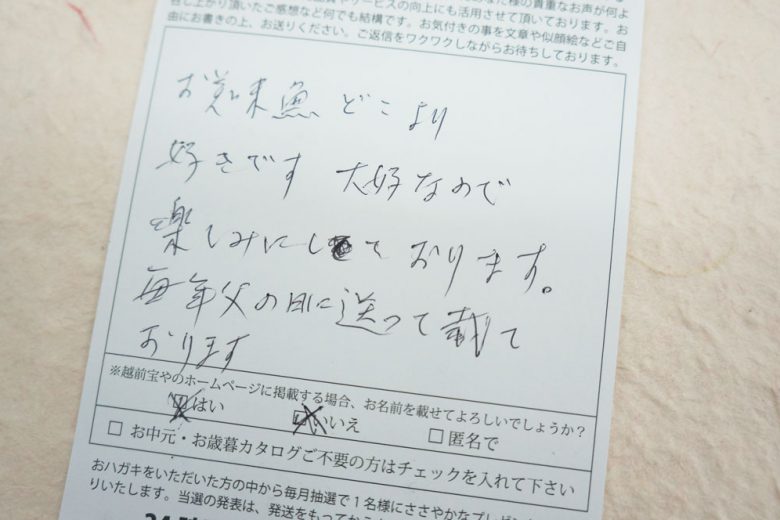 し上がり頂いたご感想など何でも結構です。お気付きの事を文章や似顔絵などご自
由にお書きの上、お送りください。ご返信をワクワクしながらお待ちしております。
お味魚どこより
好きです 大好なので
楽しみにしております。
毎年父の日に送って載て
おります
※越前宝やのホームページに掲載する場合、お名前を載せてよろしいでしょうか？
はい いいえ □匿名で
□ お中元・お歳暮カタログご不要の方はチェックを入れて下さい
おハガキをいただいた方の中から毎月抽選で1名様にささやかなプレゼン
りいたします。当選の発表は、発送をもって